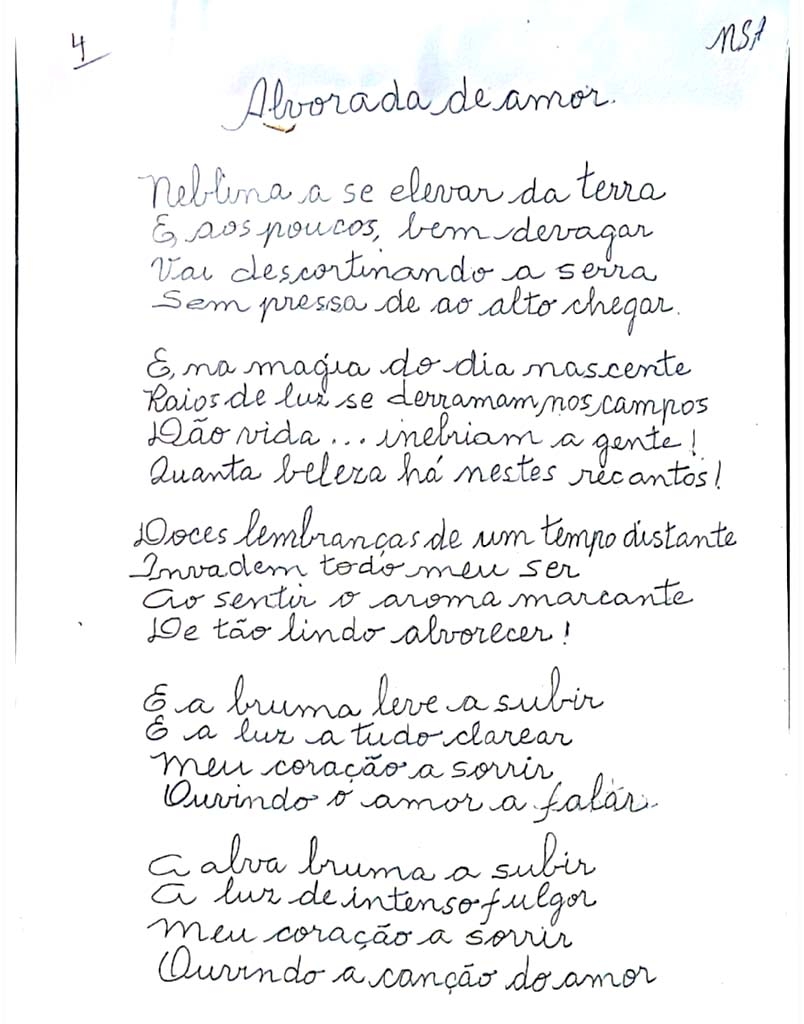 4
NSA
Alvorada de amor.
Neblina a se elevar da terra
E, aos poucos, bem devagar
Vai descortinando a serra
Sem pressa de ao alto chegar.
E, na magia do dia nascente
Raios de luz se derramam nos campos
Dão vida... inebriam a gente!
Quanta beleza há nestes recantos!
Doces lembranças de um tempo distante
Invadem todo meu ser
Ao sentir o aroma marcante
De tão lindo alvorecer!
E a bruma leve a subir
E a luz a tudo clarear
Meu coração a sorrir
Ouvindo o amor a falar.
A alva bruma a subir
A luz de intenso fulgor
Meu coração a sorrir
Ouvindo a canção do amor